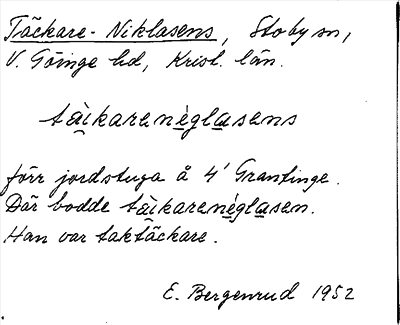 Täckare-Niklasens, Stoby sn,
V. Göinge hd, Krist. län.
tàikarenèglasens
förr jordstuga å 4' Grantinge.
Där bodde tàikarenèglasen.
Han var taktäckare.
E. Bergenrud 1952